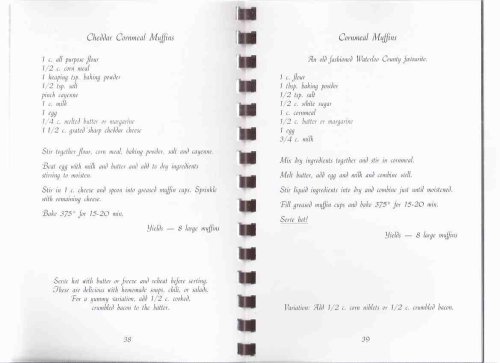 Cheddar Cornmeal Muffins
1 c. all purpose flour
1/2 c. corn meal
1 heaping tsp. baking powder
1/2 tsp. salt
pinch cayenne
1 c. milk
1 egg
1/4 c. melted butter or margarine
1 1/2 c. grated sharp cheddar cheese
Stir together flour, corn meal, baking powder, salt and cayenne.
Beat egg with milk and butter and add to dry ingredients
stirring to moisten.
Stir in 1 c. cheese and spoon into greased muffin cups. Sprinkle
with remaining cheese.
Bake 375° for 15-20 min.
Yields — 8 large muffins
Serve hot with butter or freeze and reheat before serving.
These are delicious with homemade soups, chili, or salads.
For a yummy variation, add 1/2 c. cooked,
crumbled bacon to the batter.
38
Cornmeal Muffins
An old fashioned Waterloo County favourite.
1 c. flour
1 tbsp. baking powder
1/2 tsp. salt
1/2 c. white sugar
1 c. cornmeal
1/2 c. butter or margarine
1 egg
3/4 c. milk
Mix dry ingredients together and stir in cornmeal.
Melt butter, add egg and milk and combine well.
Stir liquid ingredients into dry and combine just until moistened.
Fill greased muffin cups and bake 375° for 15-20 min.
Serve hot!
Yields — 8 large muffins
Variation: Add 1/2 c. corn niblets or 1/2 c. crumbled bacon.
39